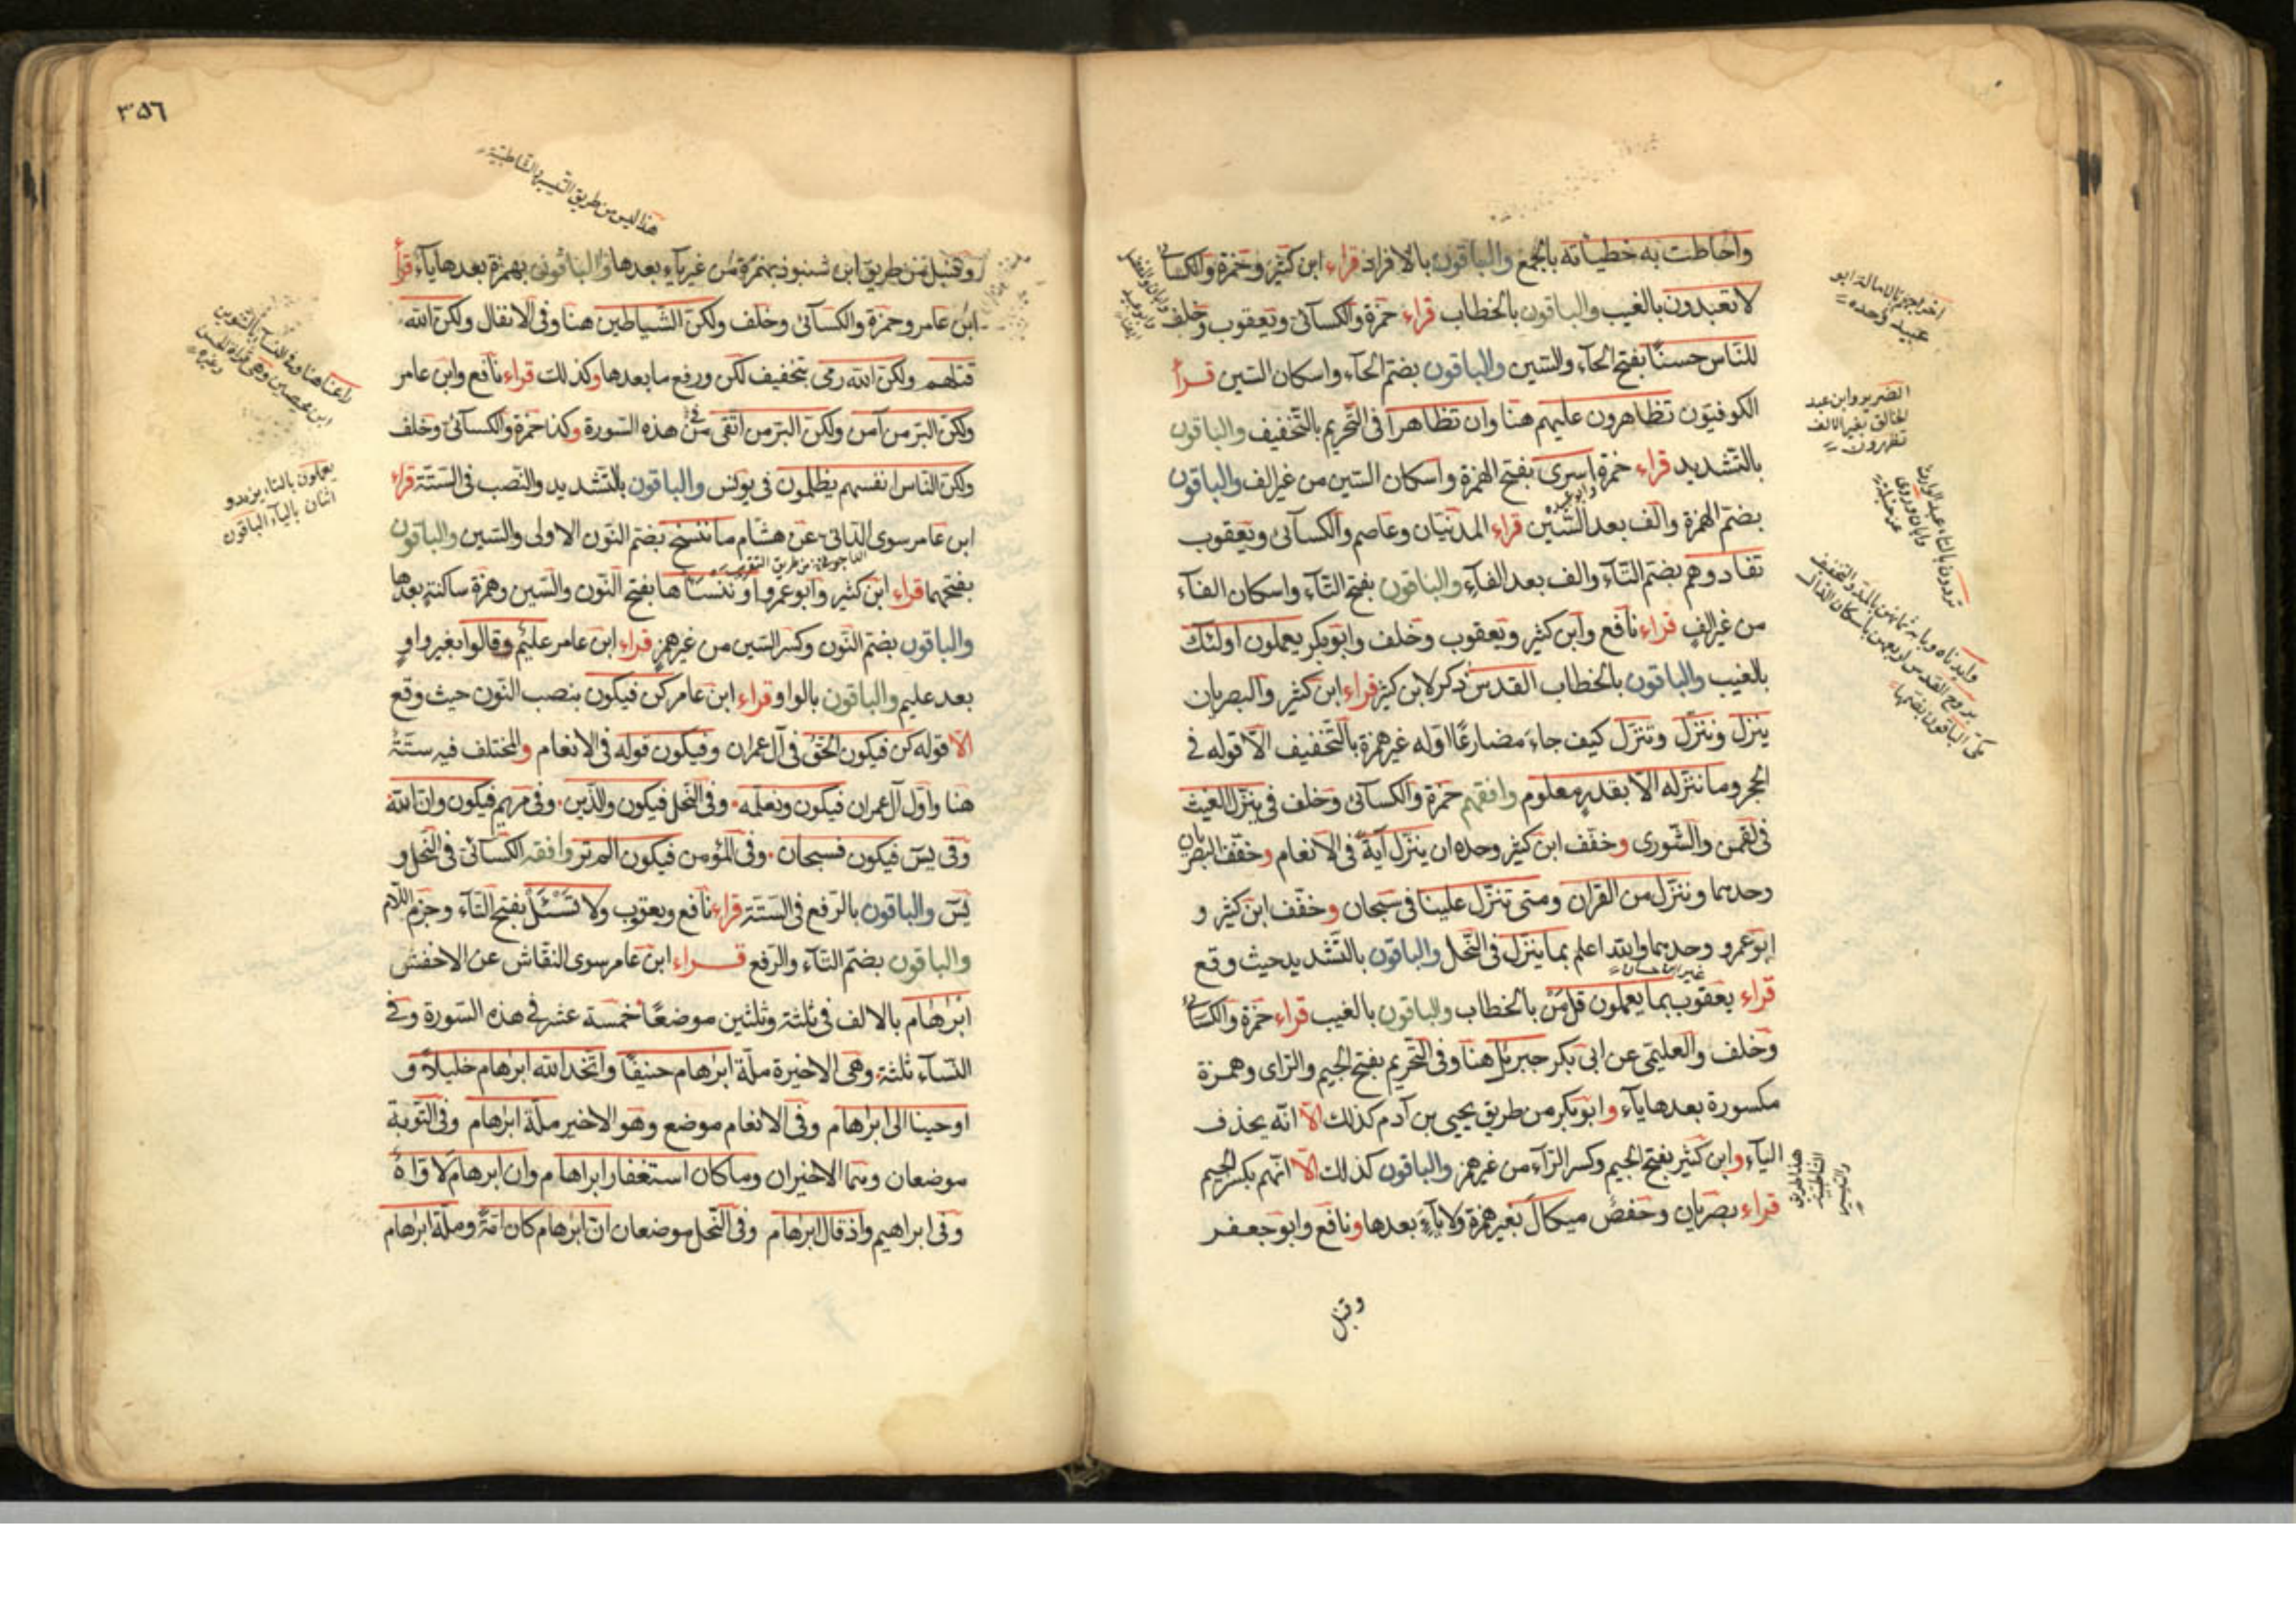 واحاطت به خطيئاته بالجمع والباقون بالافراد قراء ابن كثير وحمزة والكسائى
لا تعبدون بالغيب والباقون بالخطاب قراء حمزة والكسائى ويعقوب وخلف
للناس حسنًا بفتح الحآء والسّين والباقون بضم الحآء واسكان السّين قرأ
الكوفيّون تظاهرون عليهم هنا وان تظاهرا فى التّحريم بالتّخفيف والباقون
بالتّشديد قراء حمزة اسرى بفتح الهمزة واسكان السّين من غير الف والباقون
بضم الهمزة والف بعد السّين قراء المدنيّان وعاصم والكسائى ويعقوب
تفادوهم بضم التّآء والف بعد الفآء والباقون بفتح التّآء واسكان الفآء
من غير الف قراء نافع وابن كثير ويعقوب وخلف وابو بكر يعملون اولئك
بالغيب والباقون بالخطاب القدس ذكر لابن كثير قراء ابن كثير والبصريان
ينزل وننزّل وتنزّل كيف جاء مضارعًا اوّله غير همزة بالتّخفيف الّا قوله فى
الحجر وما ننزّله الّا بقدر معلوم وافقهم حمزة والكسائى وخلف فى ينزّل الغيث
فى لقمن والشّورى وخفّف ابن كثير وحده ان ينزّل آية فى الانعام وخفّف البصريان
وحدهما وننزّل من القران ومتى تنزّل علينا فى سبحان وخفّف ابن كثير و
ابو عمرو وحدهما وابتدا اعلم بما ينزّل فى النّحل والباقون بالتّشديد حيث وقع
قراء يعقوب بما يعملون قل من بالخطاب والباقون بالغيب قراء حمزة والكسائى
وخلف والعليمى عن ابى بكر جبرئل هنا وفى التّحريم بفتح الجيم والرّاى وهمزة
مكسورة بعدها يآء وابو بكر من طريق يحيى بن آدم كذلك الّا انّه يحذف
اليآء وابن كثير بفتح الجيم وكسر الرّآء من غير همز والباقون كذلك الّا انّهم بكسر الجيم
قراء بصريان وحفص ميكال بغير همزة ولا يآء بعدها ونافع وابو جعفر
وقنبل
اخر بجبر بالامالة ابو
عبيد وحده
الضرير وابن عبد
الخالق بغير الالف
تظهرون
٣٥٦
هذا ليس من طريق التيسير والشاطبيّة
وقنبل من طريق ابن شنبوذ بهمزة من غير يآء بعدها والباقون بهمزة بعدها يآء قرأ
ابن عامر وحمزة والكسائى وخلف ولكن الشّياطين هنا وفى الانفال ولكن الله
قتلهم ولكن الله رمى بتخفيف لكن ورفع ما بعدها وكذلك قراء نافع وابن عامر
ولكن البرّ من آمن ولكن البرّ من اتقى فى هذه السّورة وكذا حمزة والكسائى وخلف
ولكن النّاس انفسهم يظلمون فى يونس والباقون بالتّشديد والنّصب فى السّتّة قراء
ابن عامر سوى الدّاجونى عن هشام ما ننسخ بضم النّون الاولى والسّين والباقون
بفتحهما قراء ابن كثير وابو عمرو او ننسأها بفتح النّون والسّين وهمزة ساكنة بعدها
والباقون بضم النّون وكسر السّين من غير همز قراء ابن عامر عليم وقالوا بغير واو
بعد عليم والباقون بالواو قراء ابن عامر كن فيكون بنصب النّون حيث وقع
الّا قوله كن فيكون الحقّ فى آل عمران وفيكون قوله فى الانعام والمختلف فيه ستّة
هنا واول آل عمران فيكون ونعلّمه وفى النّحل فيكون والّذين وفى مريم فيكون وانّ الله
وفى يس فيكون فسبحان وفى المؤمن فيكون الم تر وافقه الكسائى فى النّحل و
يس والباقون بالرّفع فى السّتّة قراء نافع ويعقوب ولا تسئل بفتح التّآء وجزم اللّام
والباقون بضم التّآء والرّفع قراء ابن عامر سوى النّقاش عن الاخفش
ابرهام بالالف فى ثلثة وثلثين موضعًا خمسة عشر فى هذه السّورة وفى
النّسآء ثلثة وهى الاخيرة ملّة ابرهام حنيفًا واتّخد الله ابرهام خليلًا و
اوحينا الى ابرهام وفى الانعام موضع وهو الاخير ملّة ابرهام وفى التّوبة
موضعان وهما الاخيران وما كان استغفار ابراهام وان ابرهام لاوّاه
وفى ابراهيم واذ قال ابرهام وفى النّحل موضعان انّ ابرهام كان امّة وملّة ابرهام
يعملون بالتاء يزيد و
اثنان بالياء الباقون